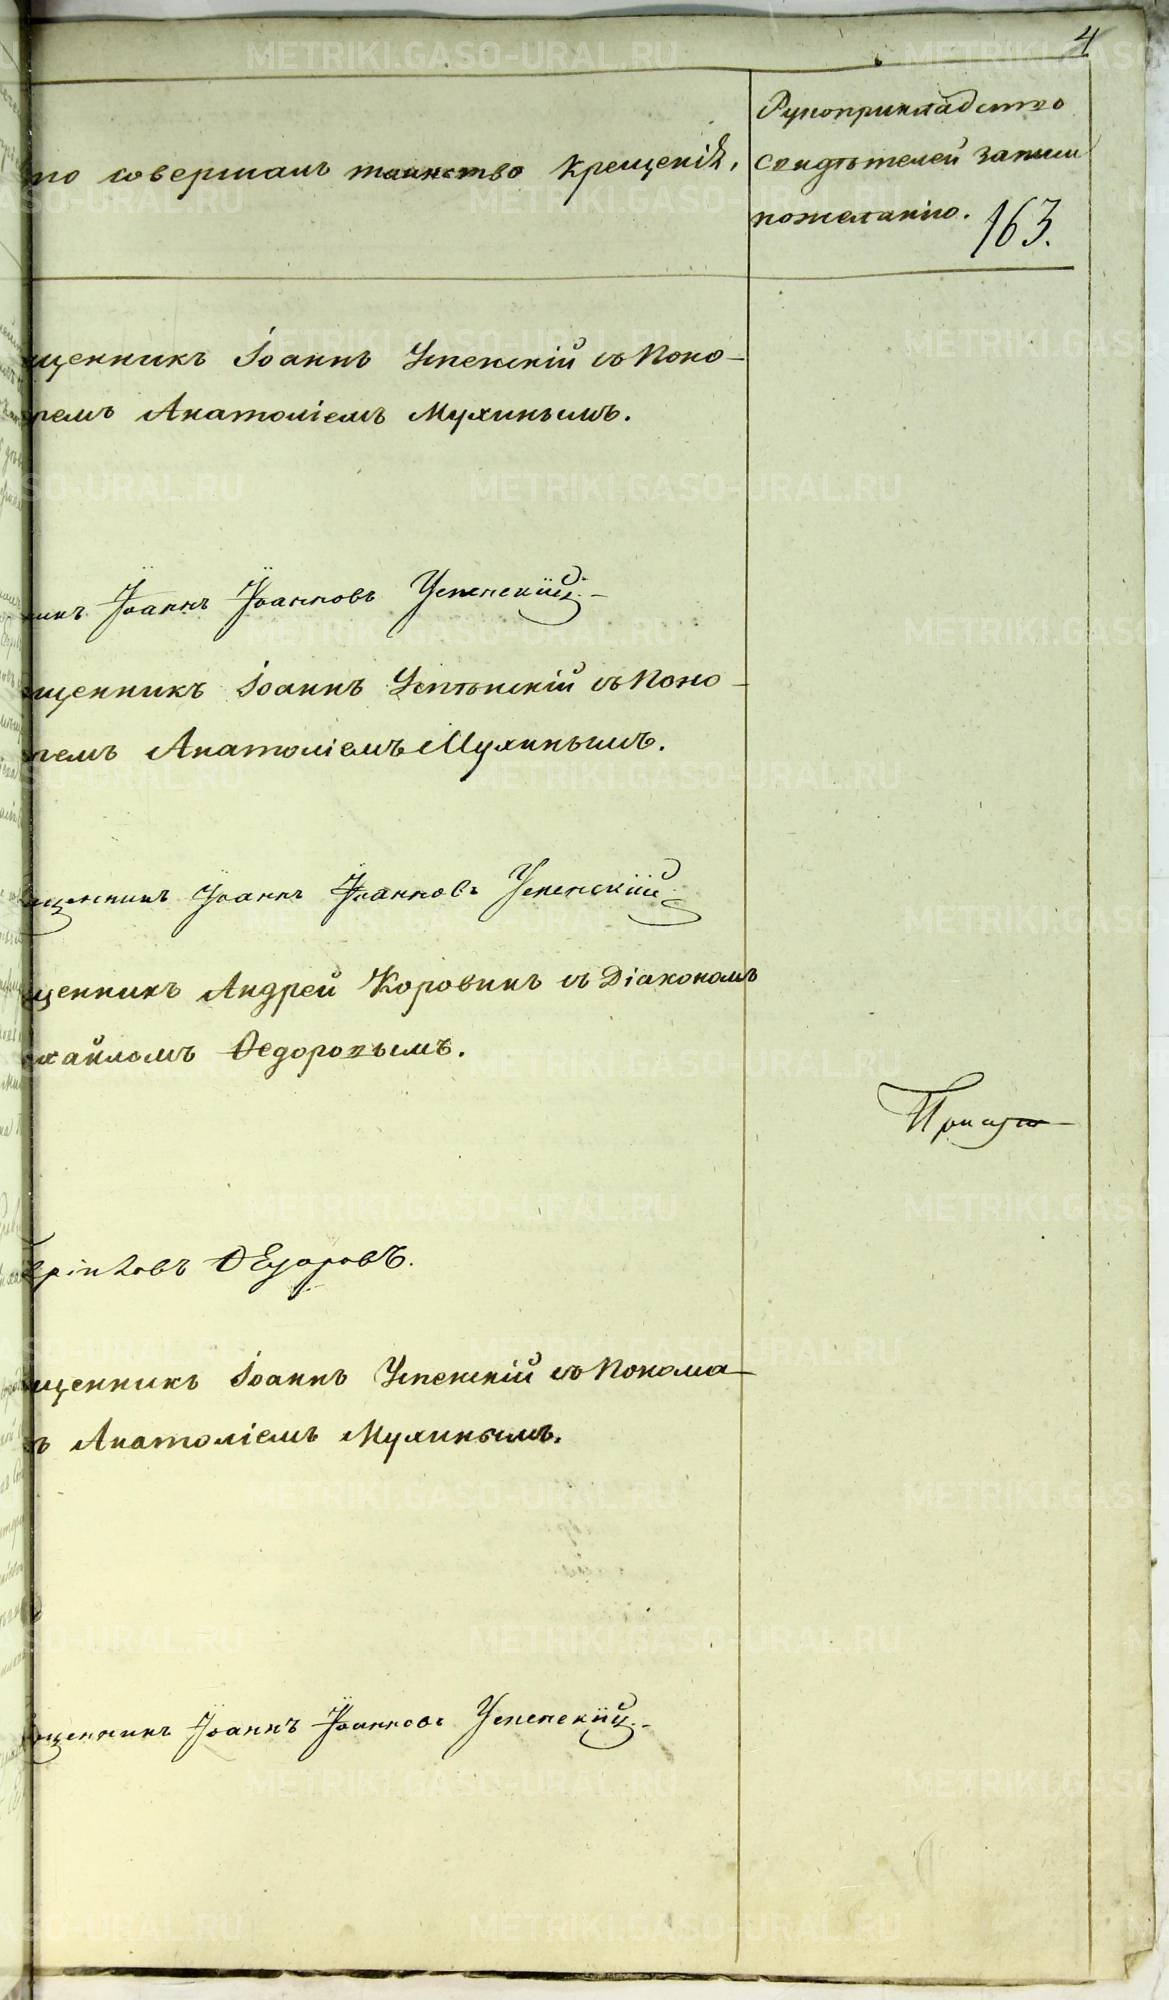 4
то совершалъ таинство крещенія.
Рукоприкладство
свидѣтелей записи
по желанію.
163.
щенникъ Іоаннъ Успенскій съ Поно-
ремъ Анатоліемъ Мухинымъ.
никъ Іоаннъ Іоанновъ Успенскій.
щенникъ Іоаннъ Успѣнскій съ Поно-
ремъ Анатоліемъ Мухинымъ.
щенникъ Іоаннъ Іоанновъ Успенскій.
щенникъ Андрей Коровинъ съ Діакономъ
хаиломъ Ѳедоровымъ.
Ѳедоровъ.
щенникъ Іоаннъ Успенскій съ Понома-
ъ Анатоліемъ Мухинымъ.
щенникъ Іоаннъ Іоанновъ Успенскій.
METRIKI.GASO-URAL.RU